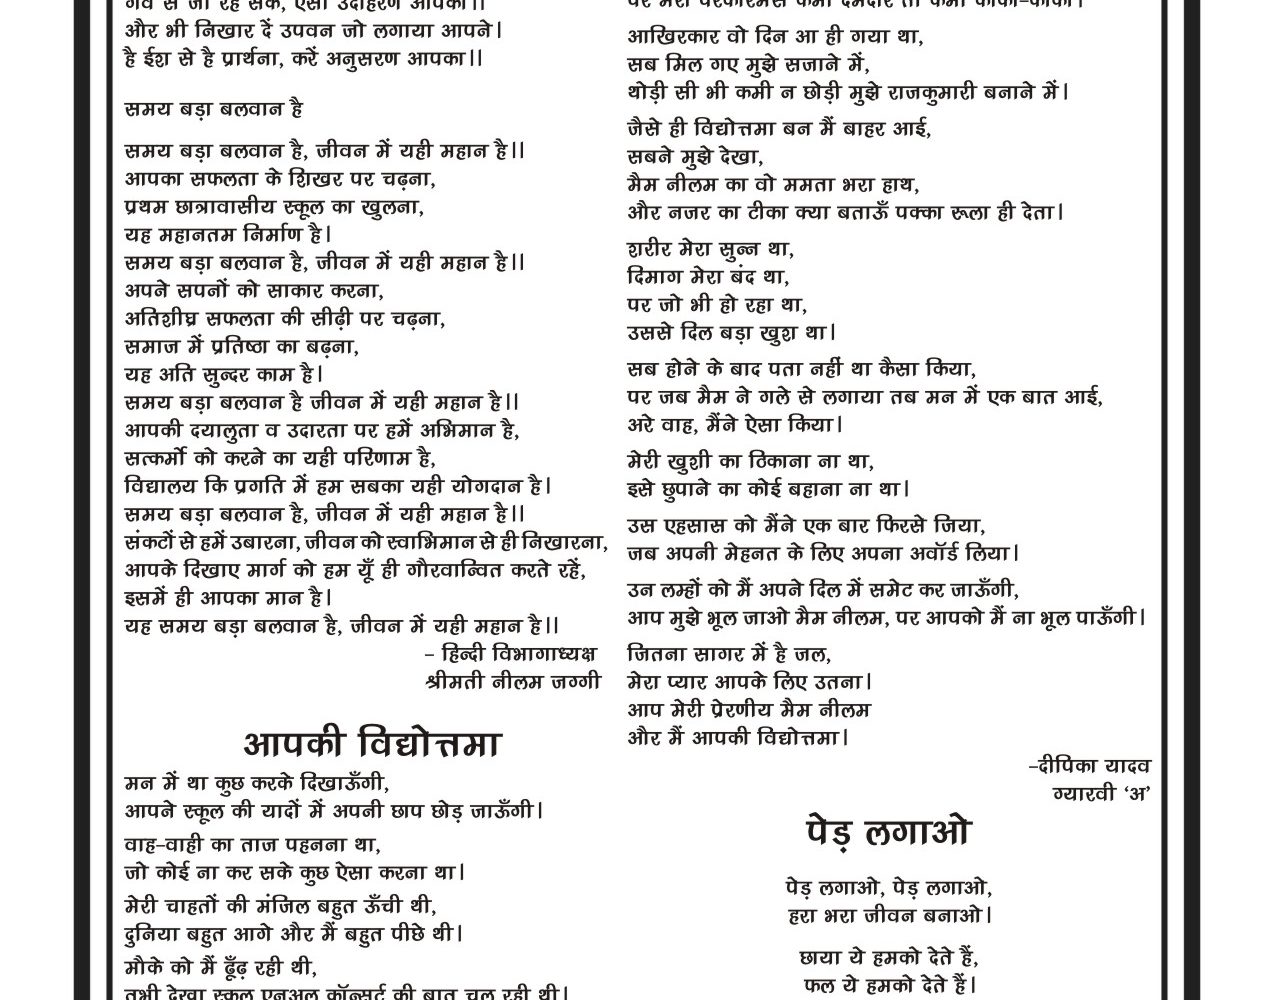 गर्व से जी रह सकें, ऐसा उदाहरण आपका।।
और भी निखार दें उपवन जो लगाया आपने।
है ईश से है प्रार्थना, करें अनुसरण आपका।।
समय बड़ा बलवान है
समय बड़ा बलवान है, जीवन में यही महान है।।
आपका सफलता के शिखर पर चढ़ना,
प्रथम छात्रावासीय स्कूल का खुलना,
यह महानतम निर्माण है।
समय बड़ा बलवान है, जीवन में यही महान है।।
अपने सपनों को साकार करना,
अतिशीघ्र सफलता की सीढ़ी पर चढ़ना,
समाज में प्रतिष्ठा का बढ़ना,
यह अति सुन्दर काम है।
समय बड़ा बलवान है जीवन में यही महान है।।
आपकी दयालुता व उदारता पर हमें अभिमान है,
सत्कर्मो को करने का यही परिणाम है,
विद्यालय कि प्रगति में हम सबका यही योगदान है।
समय बड़ा बलवान है, जीवन में यही महान है।।
संकटों से हमें उबारना, जीवन को स्वाभिमान से ही निखारना,
आपके दिखाए मार्ग को हम यूँ ही गौरवान्वित करते रहें,
इसमें ही आपका मान है।
यह समय बड़ा बलवान है, जीवन में यही महान है।।
– हिन्दी विभागाध्यक्ष
श्रीमती नीलम जग्गी
आपकी विद्योत्तमा
मन में था कुछ करके दिखाऊँगी,
आपने स्कूल की यादों में अपनी छाप छोड़ जाऊँगी।
वाह–वाही का ताज पहनना था,
जो कोई ना कर सके कुछ ऐसा करना था।
मेरी चाहतों की मंजिल बहुत ऊँची थी,
दुनिया बहुत आगे और मैं बहुत पीछे थी।
मौके को मैं ढूँढ़ रही थी,
तभी देखा स्कूल एनुअल कॉन्सर्ट की बात चल रही थी।
पर मेरी परफॉरमेंस कभी दमदार तो कभी फीकी–फीकी।
आखिरकार वो दिन आ ही गया था,
सब मिल गए मुझे सजाने में,
थोड़ी सी भी कमी न छोड़ी मुझे राजकुमारी बनाने में।
जैसे ही विद्योत्तमा बन मैं बाहर आई,
सबने मुझे देखा,
मैम नीलम का वो ममता भरा हाथ,
और नजर का टीका क्या बताऊँ पक्का रूला ही देता।
शरीर मेरा सुन्न था,
दिमाग मेरा बंद था,
पर जो भी हो रहा था,
उससे दिल बड़ा खुश था।
सब होने के बाद पता नहीं था कैसा किया,
पर जब मैम ने गले से लगाया तब मन में एक बात आई,
अरे वाह, मैंने ऐसा किया।
मेरी खुशी का ठिकाना ना था,
इसे छुपाने का कोई बहाना ना था।
उस एहसास को मैंने एक बार फिरसे जिया,
जब अपनी मेहनत के लिए अपना अवॉर्ड लिया।
उन लम्हों को मैं अपने दिल में समेट कर जाऊँगी,
आप मुझे भूल जाओ मैम नीलम, पर आपको मैं ना भूल पाऊँगी।
जितना सागर में है जल,
मेरा प्यार आपके लिए उतना।
आप मेरी प्रेरणीय मैम नीलम
और मैं आपकी विद्योत्तमा।
–दीपिका यादव
ग्यारवी ‘अ’
पेड़ लगाओ
पेड़ लगाओ, पेड़ लगाओ,
हरा भरा जीवन बनाओ।
छाया ये हमको देते हैं,
फल ये हमको देते हैं।